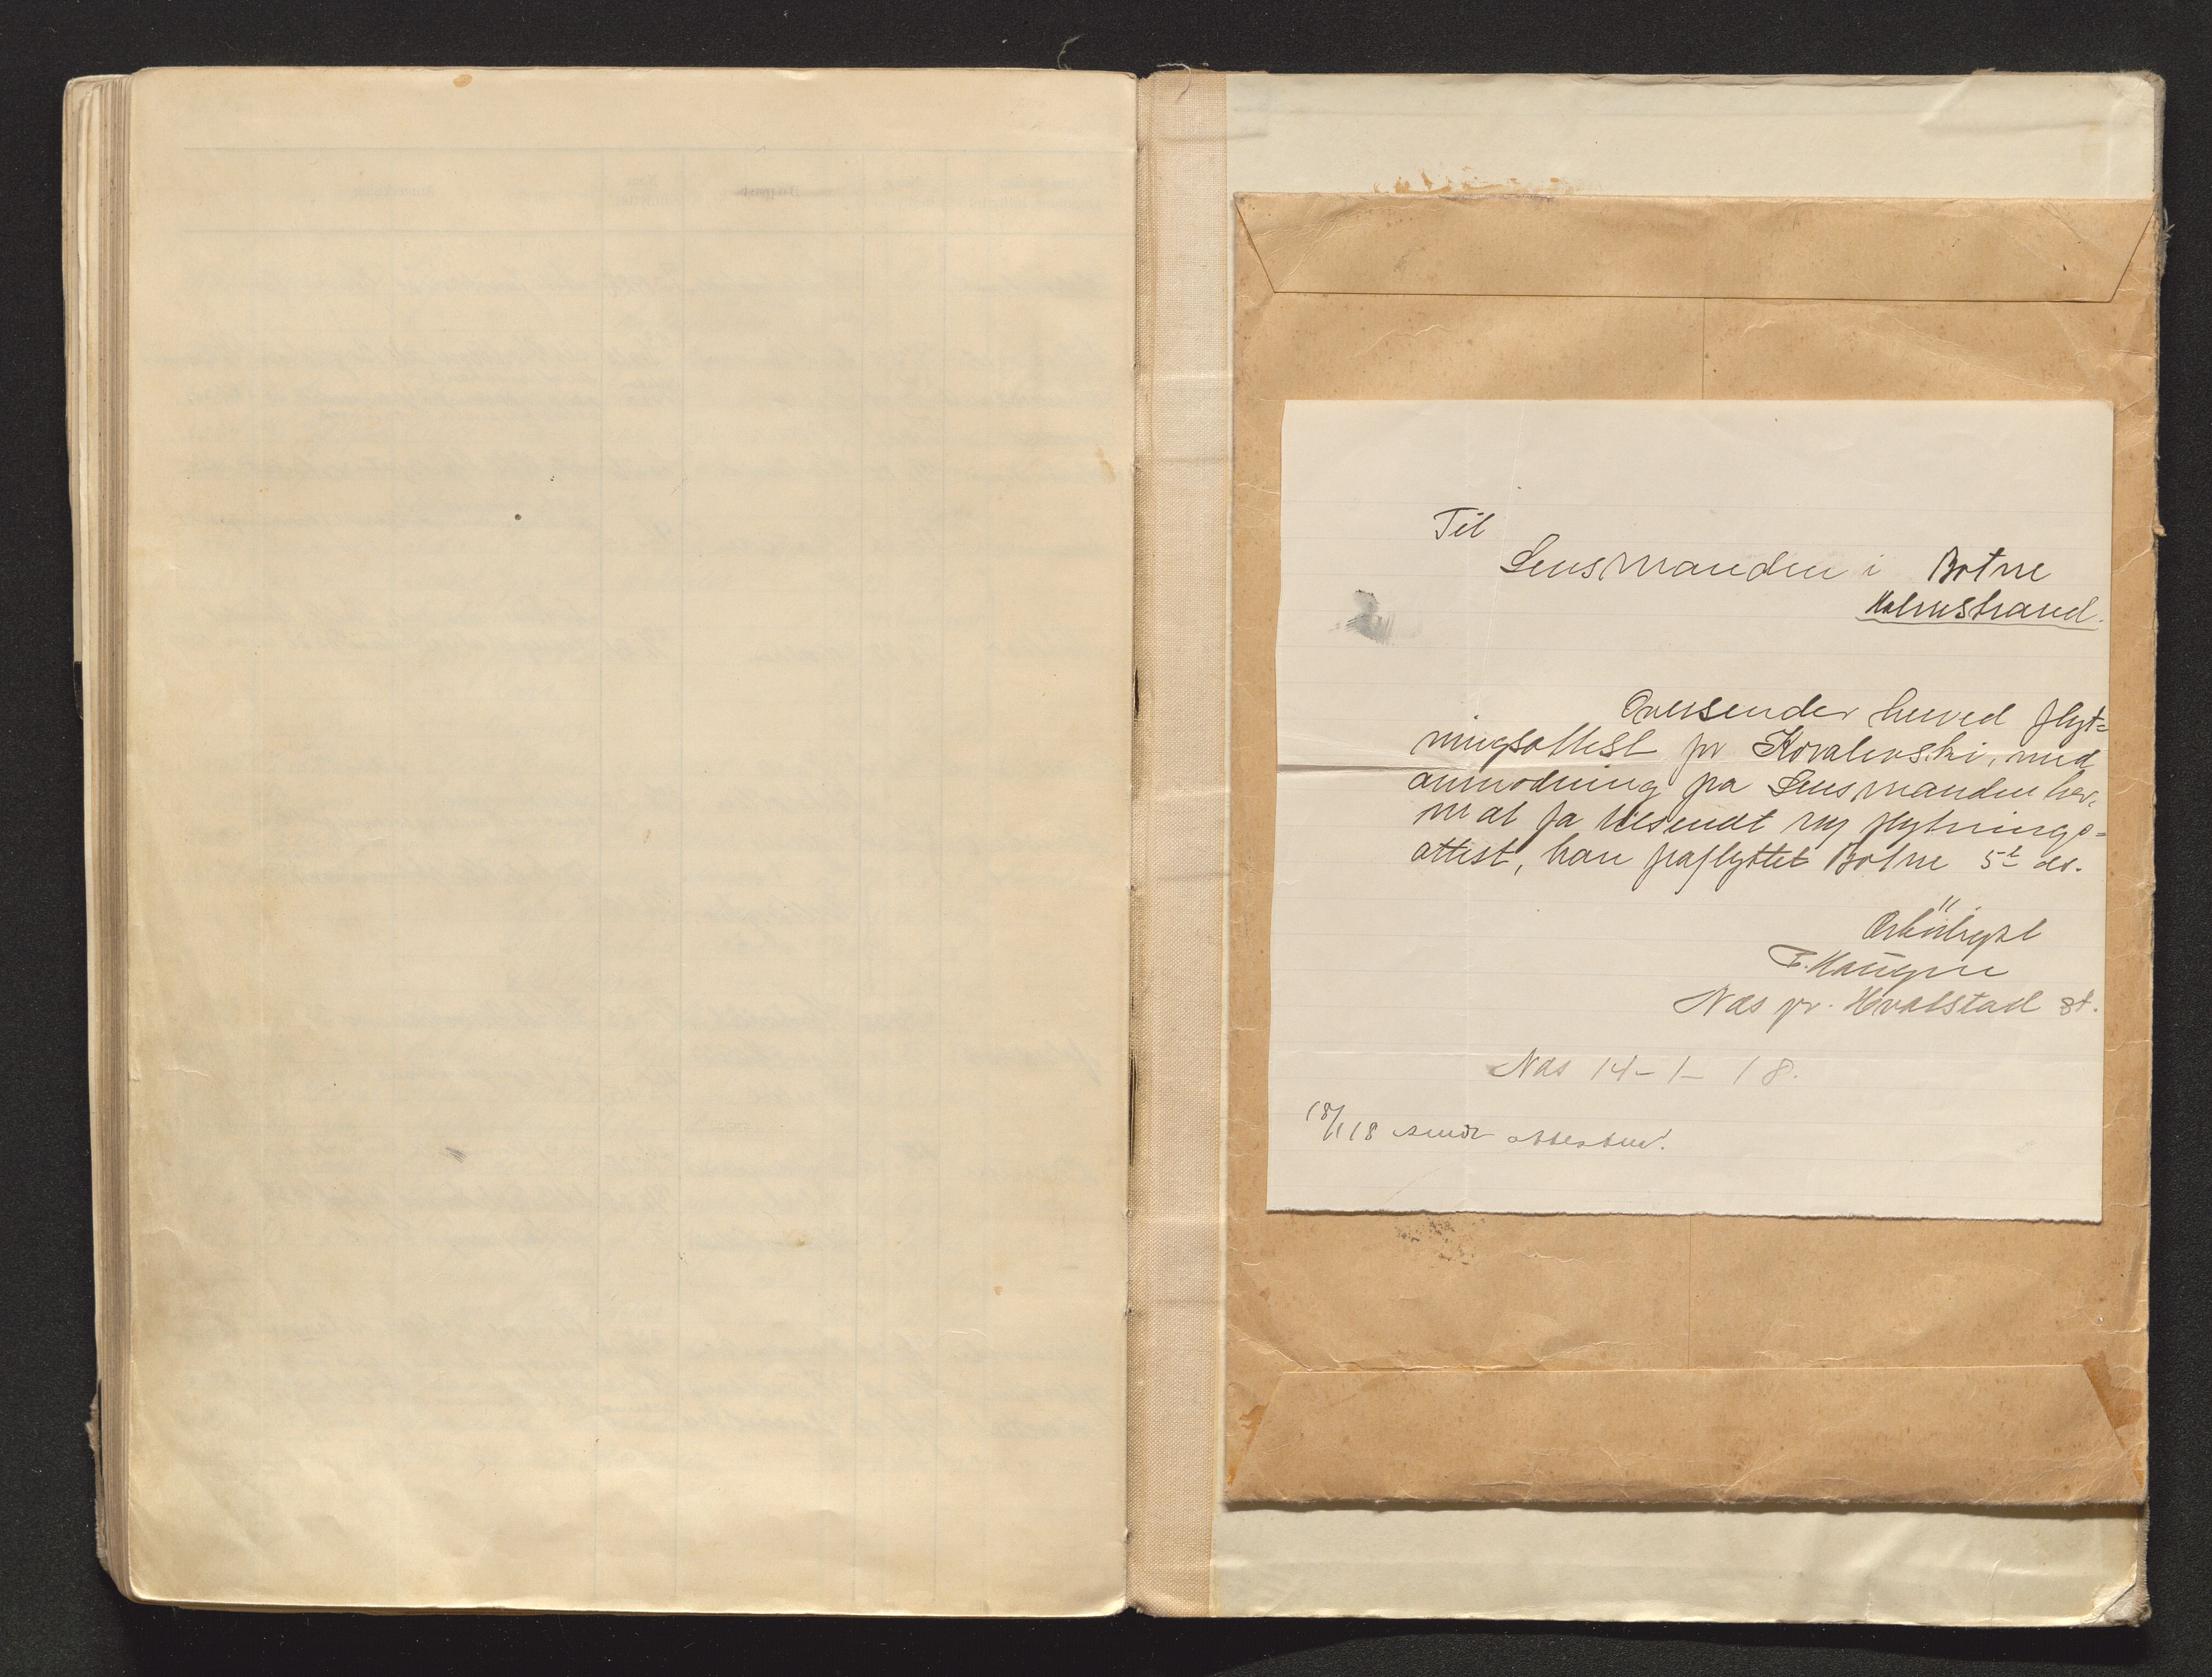 Til
Lensmanden i Botne
Holmstrand.
Oversender herved flyt=
ningsattest for Kovalevski, med
anmodning fra Lensmanden her,
om at fa tilsendt ny flytnings=
attest, han fraflyttet Botne 5t ds.
Ærbödigst
F. Haugen
Næs pr. Hvalstad st.
Næs 14-1-18.
18/1 18 sendt attesten.